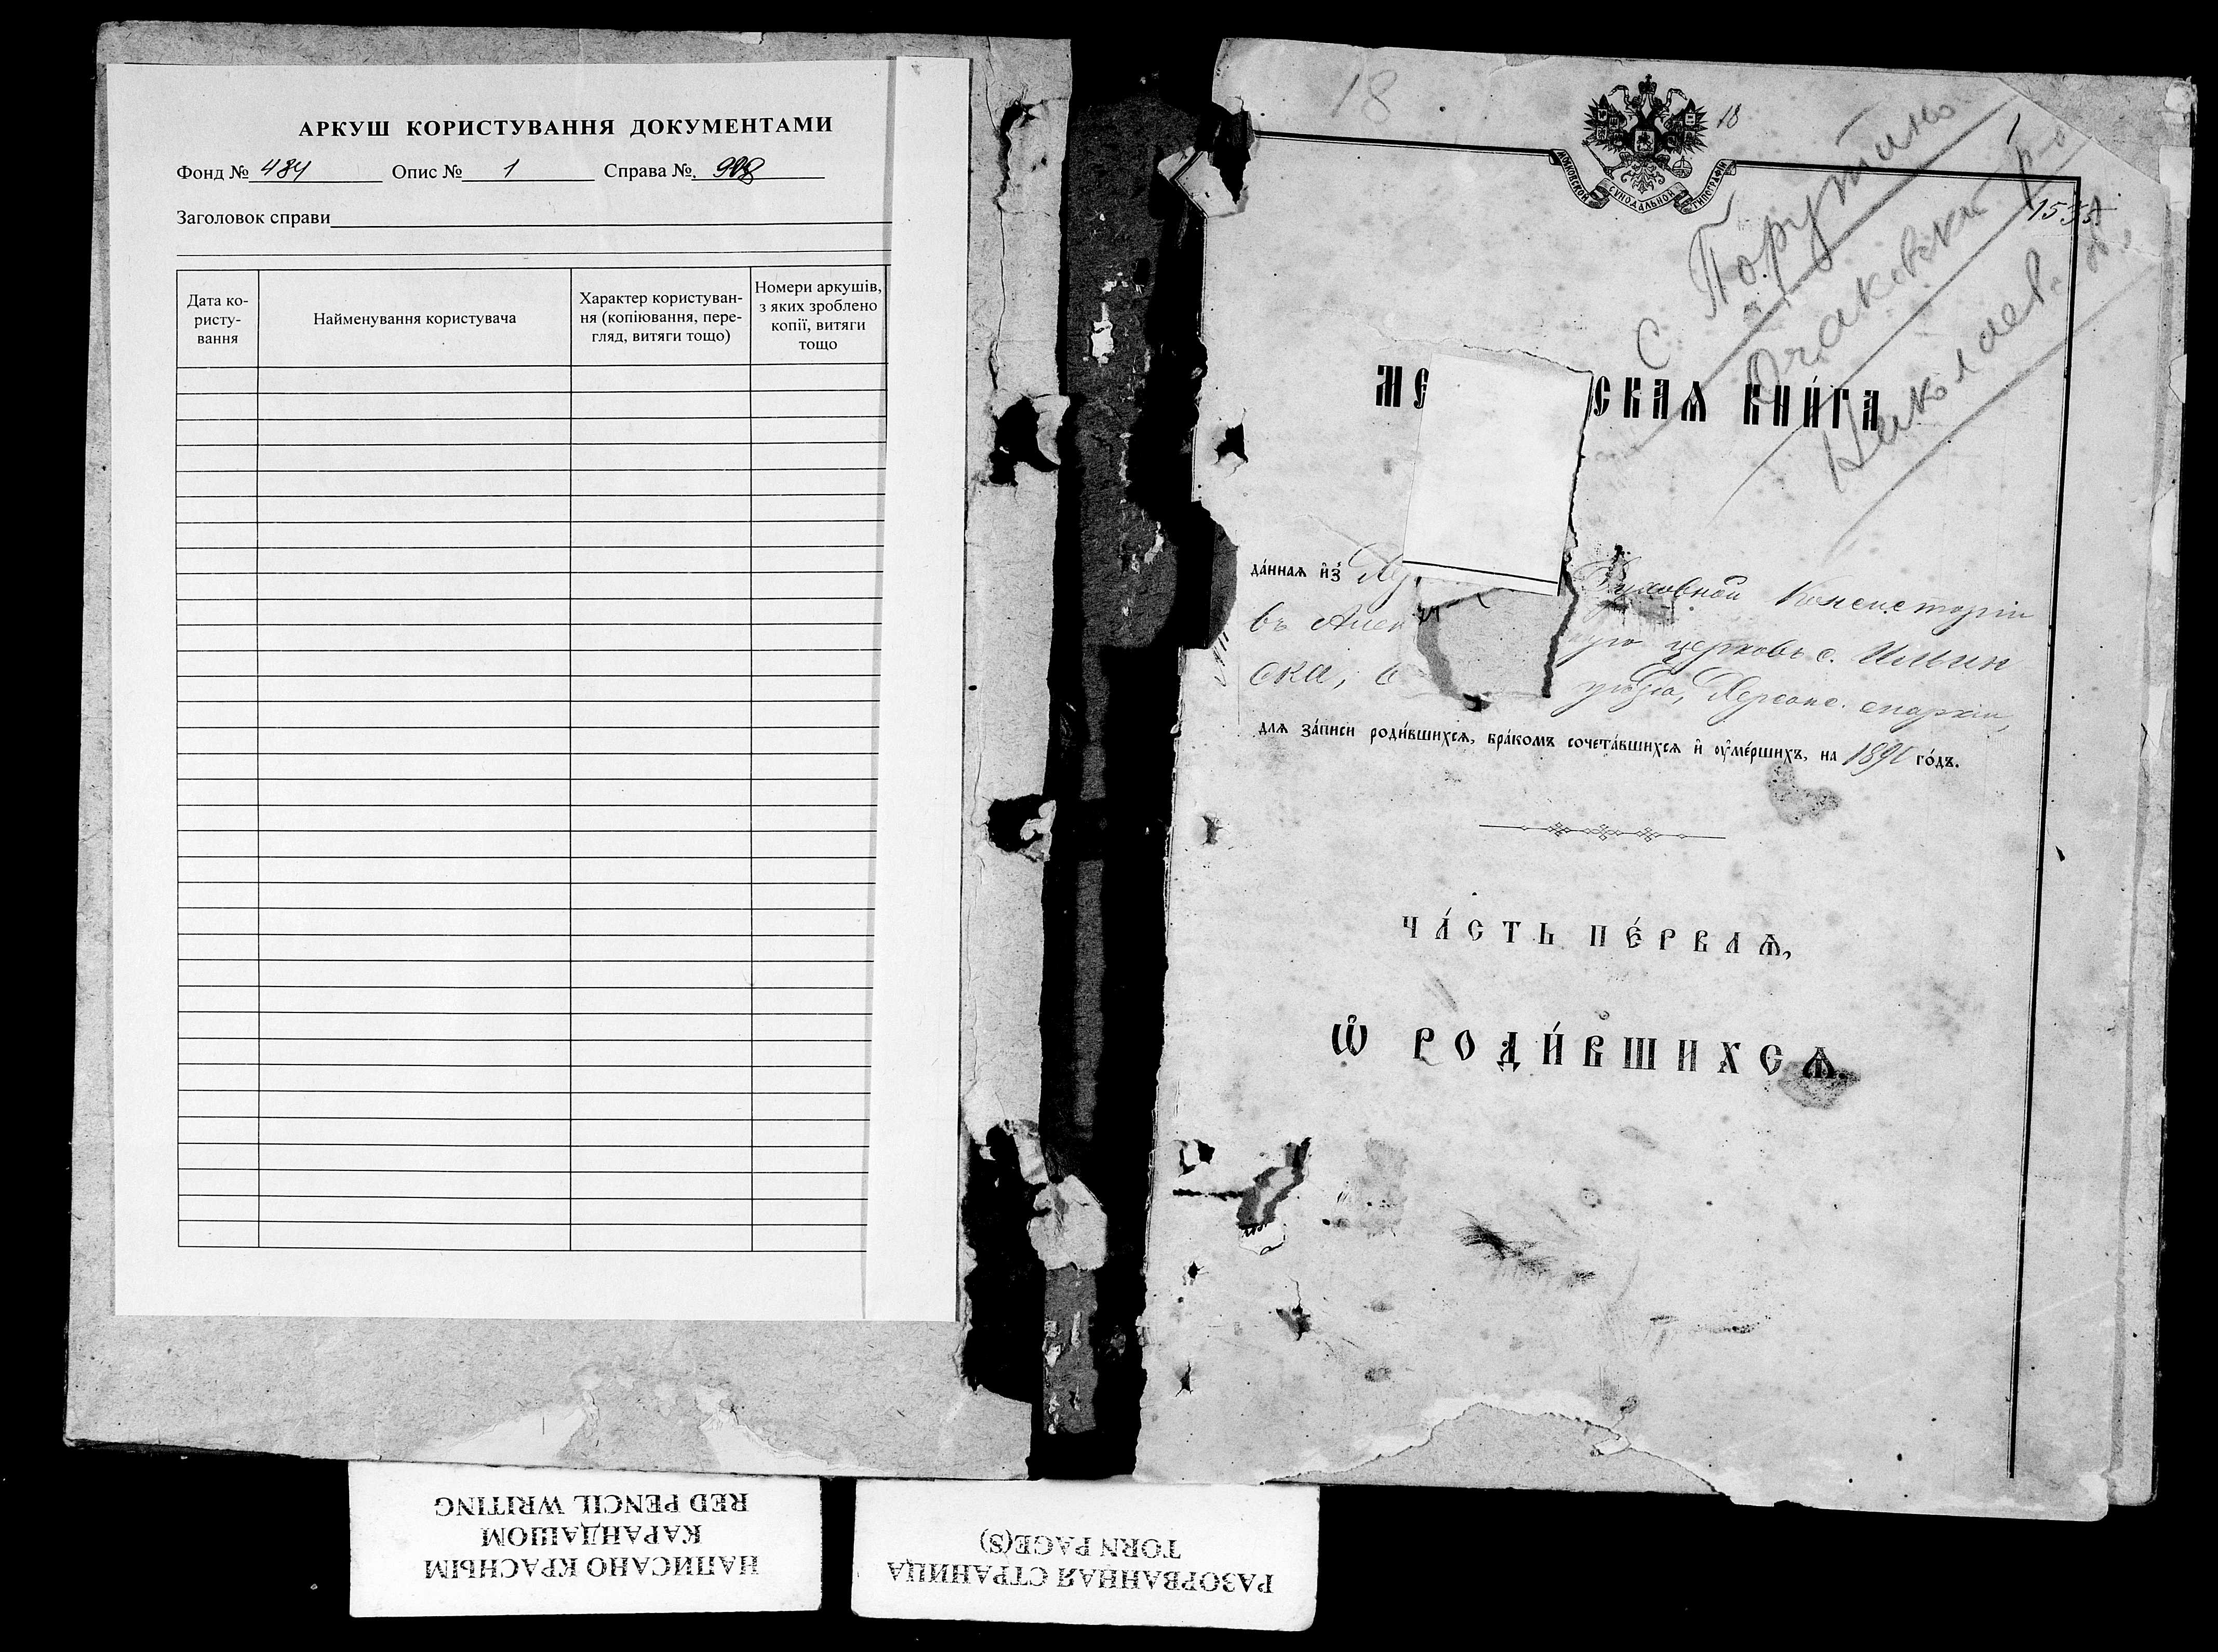 АРКУШ КОРИСТУВАННЯ ДОКУМЕНТАМИ
Фонд № 484 Опис № 1 Справа №
Заголовок справи
Дата ко-
ристу-
вання
Найменування користувача
Характер користуван-
ня (копіювання, пере-
гляд, витяги тощо)
Номери аркушів,
з яких зроблено
копії, витяги
тощо
18
18
МОСКОВСКОЙ СУНОДАЛЬНОЙ ТИПОГРАФІИ
1
с. Порутино
Очаковский р-н
Николаев.
МЕ СКАѦ КНИ́ГА
да́ннаѧ и҆з̾ Духовной Консисторіи
въ церковь с. Ильин
ска, уѣзда, Херсонс. епархіи,
длѧ за́писи роди́вшихсѧ, бра́комъ сочета́вшихсѧ и҆ ᲂу҆ме́ршихъ, на 1891 го́дъ.
ЧА́СТЬ ПЕ́РВАѦ,
Ѡ҆ РОДИ́ВШИХСѦ.
НАПИСАНО КРАСНЫМ
КАРАНДАШОМ
RED PENCIL WRITING
РАЗОРВАННАЯ СТРАНИЦА
TORN PAGE(S)